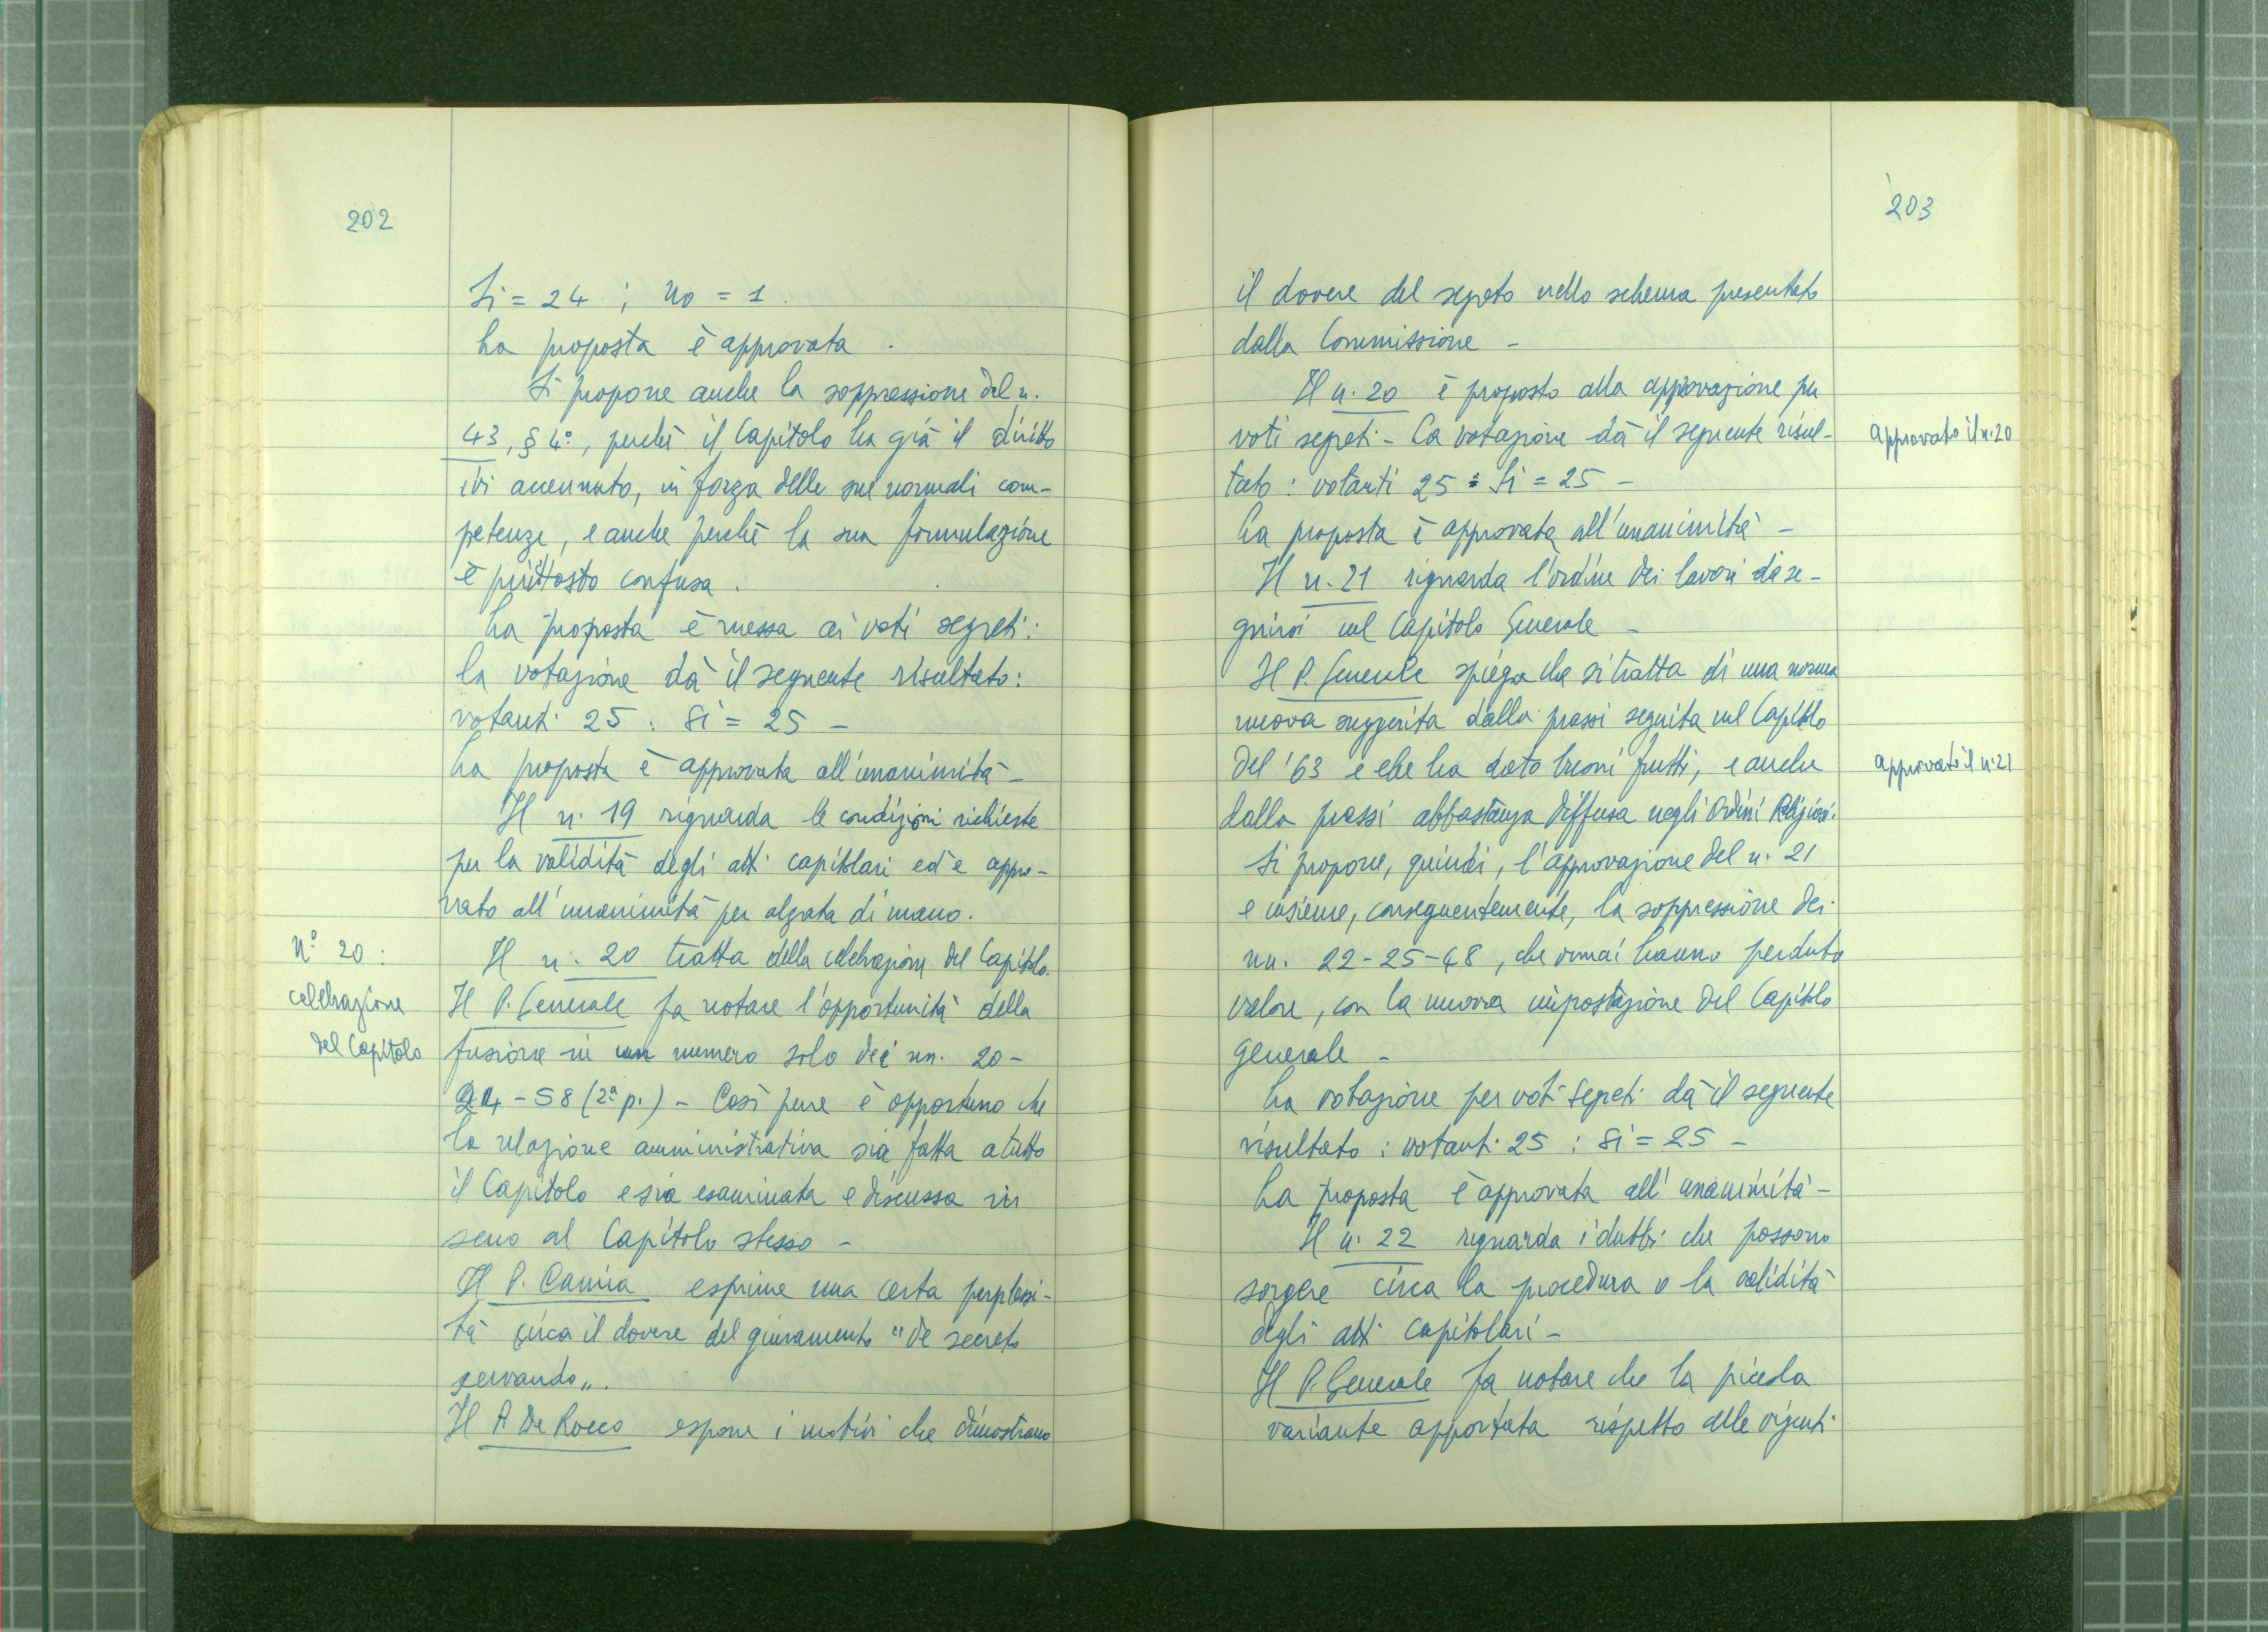 202
Si = 24 ; no = 1.
La proposta è approvata.
Si propone anche la soppressione del n.
43, § 4º, perché il Capitolo ha già il diritto
ivi accennato, in forza delle sue normali com-
petenze, e anche perché la sua formulazione
è piuttosto confusa.
La proposta è messa ai voti segreti:
la votazione dà il seguente risultato:
votanti 25 : Si = 25 -
La proposta è approvata all'unanimità -
Il n. 19 riguarda le condizioni richieste
per la validità degli atti capitolari ed è appro-
vato all'unanimità per alzata di mano.
Nº 20 :
celebrazione
del Capitolo
Il n. 20 tratta della celebrazione del Capitolo.
Il P. Generale fa notare l'opportunità della
fusione in un numero solo dei nn. 20-
24 - 58 (2ª p.) - Così pure è opportuno che
la relazione amministrativa sia fatta a tutto
il Capitolo e sia esaminata e discussa in
seno al Capitolo stesso -
Il P. Camia esprime una certa perplessi-
tà circa il dovere del giuramento "de secreto
servando".
Il P. De Rocco espone i motivi che dimostrano
203
il dovere del segreto nello schema presentato
dalla Commissione -
Il n. 20 è proposto alla approvazione per
voti segreti - La votazione dà il seguente risul-
tato : votanti 25 : Si = 25 -
approvato il n. 20
La proposta è approvata all'unanimità -
Il n. 21 riguarda l'ordine dei lavori da se-
guirsi nel Capitolo Generale -
Il P. Generale spiega che si tratta di una norma
nuova suggerita dalla prassi seguita nel Capitolo
del '63 e che ha dato buoni frutti, e anche
approvato il n. 21
dalla prassi abbastanza diffusa negli Ordini Religiosi.
Si propone, quindi, l'approvazione del n. 21
e insieme, conseguentemente, la soppressione dei
nn. 22-25-48, che ormai hanno perduto
valore, con la nuova impostazione del Capitolo
generale -
La votazione per voti segreti dà il seguente
risultato : votanti 25 : Si = 25 -
La proposta è approvata all'unanimità -
Il n. 22 riguarda i dubbi che possono
sorgere circa la procedura o la validità
degli atti capitolari -
Il P. Generale fa notare che la piccola
variante apportata rispetto alle vigenti